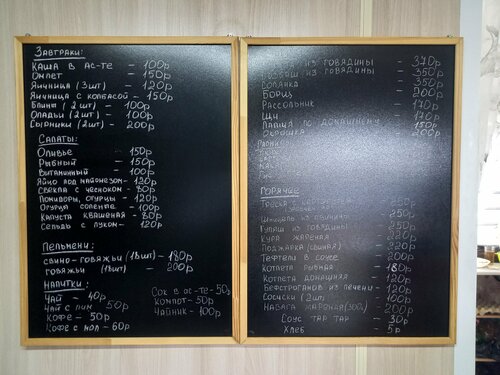 Завтраки:
Каша в ас-те — 100р
Омлет — 150р
Яичница (3шт) — 120р
Яичница с колбасой — 150р
Блины (2шт) — 100р
Оладьи (2шт) — 100р
Сырники (2шт) — 200р
Салаты:
Оливье — 150р
Рыбный — 150р
Витаминный — 100р
Яйцо под майонезом — 120р
Свекла с чесноком — 80р
Помидоры, огурцы — 120р
Огурцы соленые — 100р
Капуста квашеная — 80р
Сельдь с луком — 120р
Пельмени:
свино-говяжьи (18шт) — 180р
говяжьи (18шт) — 200р
Напитки:
Чай — 40р
Чай с лим 50р
Кофе — 50р
Кофе с мол — 60р
Сок в ас-те — 50р
Компот — 50р
Чайник — 100р
из говядины — 370р
из говядины — 350р
Солянка — 350р
Борщ — 200р
Рассольник — 170р
Щи — 170р
Лапша по домашнему — 150р
Окрошка — 200р
Горячее
Треска с
250р
из свинины — 250р
Гуляш из говядины — 250р
Кура жареная — 220р
Поджарка (свиная) — 220р
Тефтели в соусе — 200р
Котлета рыбная — 180р
Котлета домашняя — 120р
Бефстроганов из печени — 120р
Сосиски (2шт) — 100р
Навага жареная — 200р
Соус тар тар — 30р
Хлеб — 5р